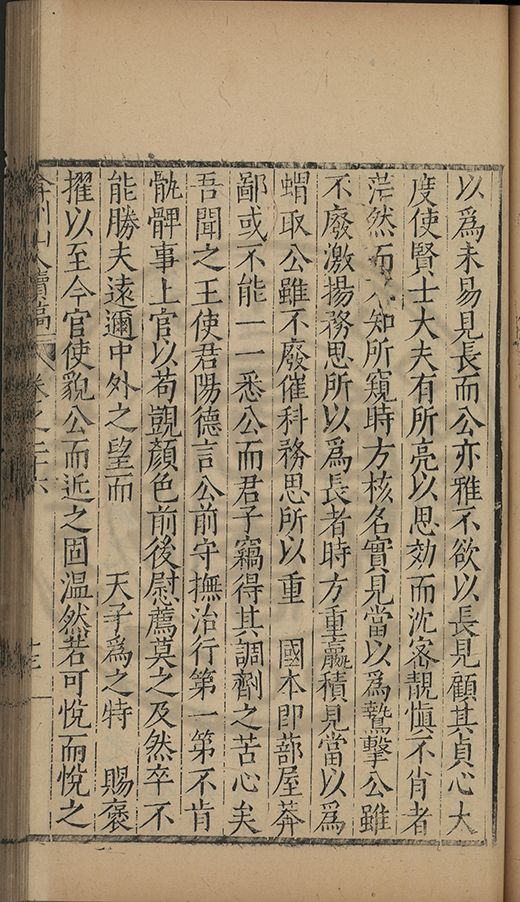 以爲未易見長而公亦雅不欲以長見顧其貞心大
度使賢士大夫有所亮以思効而沈宻靚愼不肖者
茫然而不知所窺時方核名實見當以爲鷙擊公雖
不廢激揚務思所以爲長者時方重羸積見當以爲
蝟取公雖不廢催科務思所以重　國本即蔀屋莽
鄙或不能一一悉公而君子竊得其調劑之苦心矣
吾聞之王使君陽德言公前守撫治行第一第不肯
骩髀事上官以苟覬顔色前後慰薦莫之及然卒不
能勝夫遠邇中外之望而　天子爲之特　賜褒
擢以至今官使貌公而近之固温然若可悅而悅之
弇州山人續稿　卷之二十六